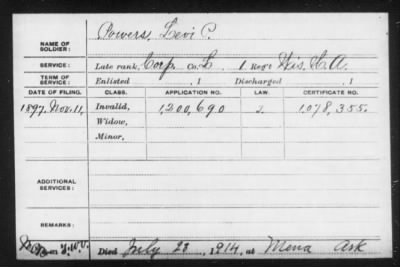 Powers, Levi C.
NAME OF SOLDIER:
SERVICE: Late rank, Corp Co. L 1 Reg't Wis. H. A.
TERM OF SERVICE: Enlisted , 1 Discharged , 1
DATE OF FILING. CLASS. APPLICATION NO. LAW. CERTIFICATE NO.
1897, Nov. 11, Invalid, 1,200,690 2. 1,078,355.
Widow,
Minor,
ADDITIONAL SERVICES:
REMARKS:
Died July 23, 1914, at Mena Ark